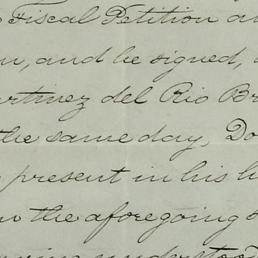 Fiscal Petition an
n, and he signed,
artinez del Rio Br
the same day, Do
present in his h
the aforegoing
understoo